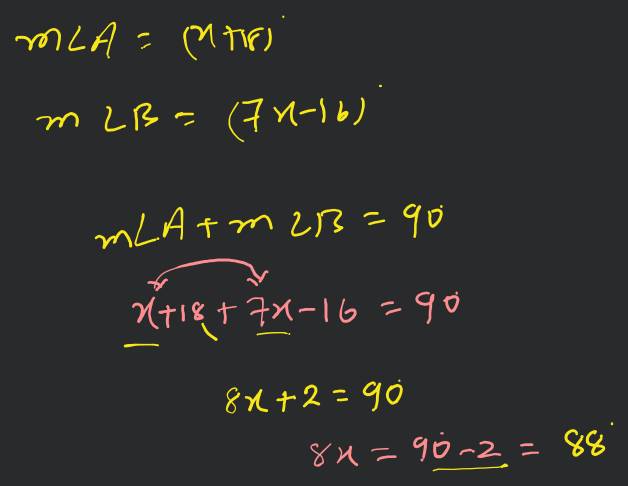 m∠A = (x+18)°
m∠B = (7x-16)°
m∠A + m∠B = 90°
x+18 + 7x-16 = 90°
8x+2 = 90°
8x = 90°-2 = 88°